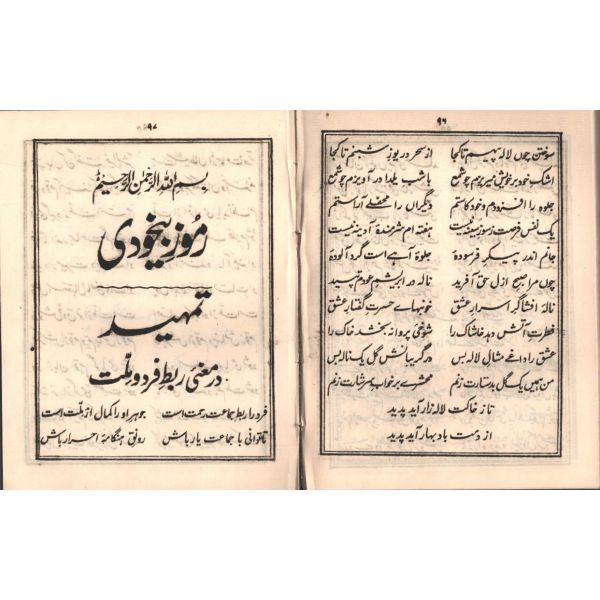 ۹۶
سوختن چوں لالہ پیہم تا کجا از سحر دریوز شبنم تا کجا
اشک خود بر خویش میریزم چو شمع با شب یلدا در آویزم چو شمع
جلوہ را افزودم و خود کاستم دیگراں را محفلے آراستم
یک نفس فرصت ز سوز سینہ نیست ہفتہ ام شرمندۂ آدینہ نیست
جانم اندر پیکر فرسودۂ جلوۂ آہے است گرد آلودۂ
چوں مرا صبح ازل حق آفرید نالہ در ابریشم عودم تپید
نالۂ افشاگر اسرار عشق خونبہاے حسرت گفتار عشق
فطرت آتش دہد خاشاک را شوخی پروانہ بخشد خاک را
عشق را داغے مثال لالہ بس در گریبانش گل یک نالہ بس
من ہمیں یک گل بدستارت زنم محشرے بر خواب سرشارت زنم
تا ز خاکت لالہ زار آید پدید
از دمت باد بہار آید پدید
۹۷
بسم اللہ الرحمٰن الرحیم
رموز بیخودی
تمہید
در معنی ربط فرد و ملت
فرد را ربط جماعت رحمت است جوہر او را کمال از ملت است
تا توانی با جماعت یار باش رونق ہنگامۂ احرار باش